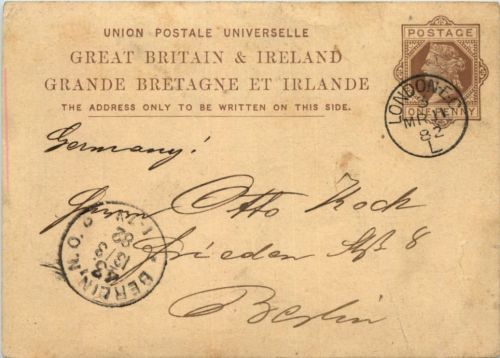 UNION POSTALE UNIVERSELLE
GREAT BRITAIN & IRELAND
GRANDE BRETAGNE ET IRLANDE
THE ADDRESS ONLY TO BE WRITTEN ON THIS SIDE.
POSTAGE
ONE PENNY
LONDON·E.C
3
MR 11
82
L
Germany!
Herrn Otto Koch
Frieden Str 8
Berlin
BERLIN.N.O. 
43
13/3
82